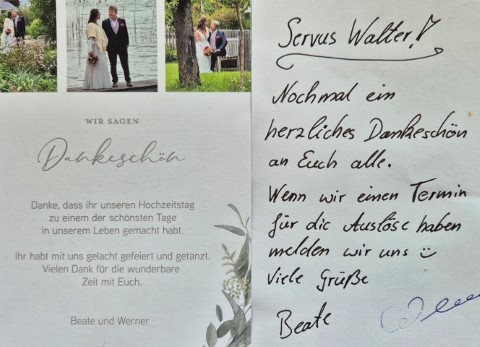 WIR SAGEN
Dankeschön
Danke, dass ihr unseren Hochzeitstag
zu einem der schönsten Tage
in unserem Leben gemacht habt.
Ihr habt mit uns gelacht gefeiert und getanzt.
Vielen Dank für die wunderbare
Zeit mit Euch.
Beate und Werner
Servus Walter!
Nochmal ein
herzliches Dankeschön
an Euch alle.
Wenn wir einen Termin
für die Auslöse haben
melden wir uns
Viele Grüße
Beate